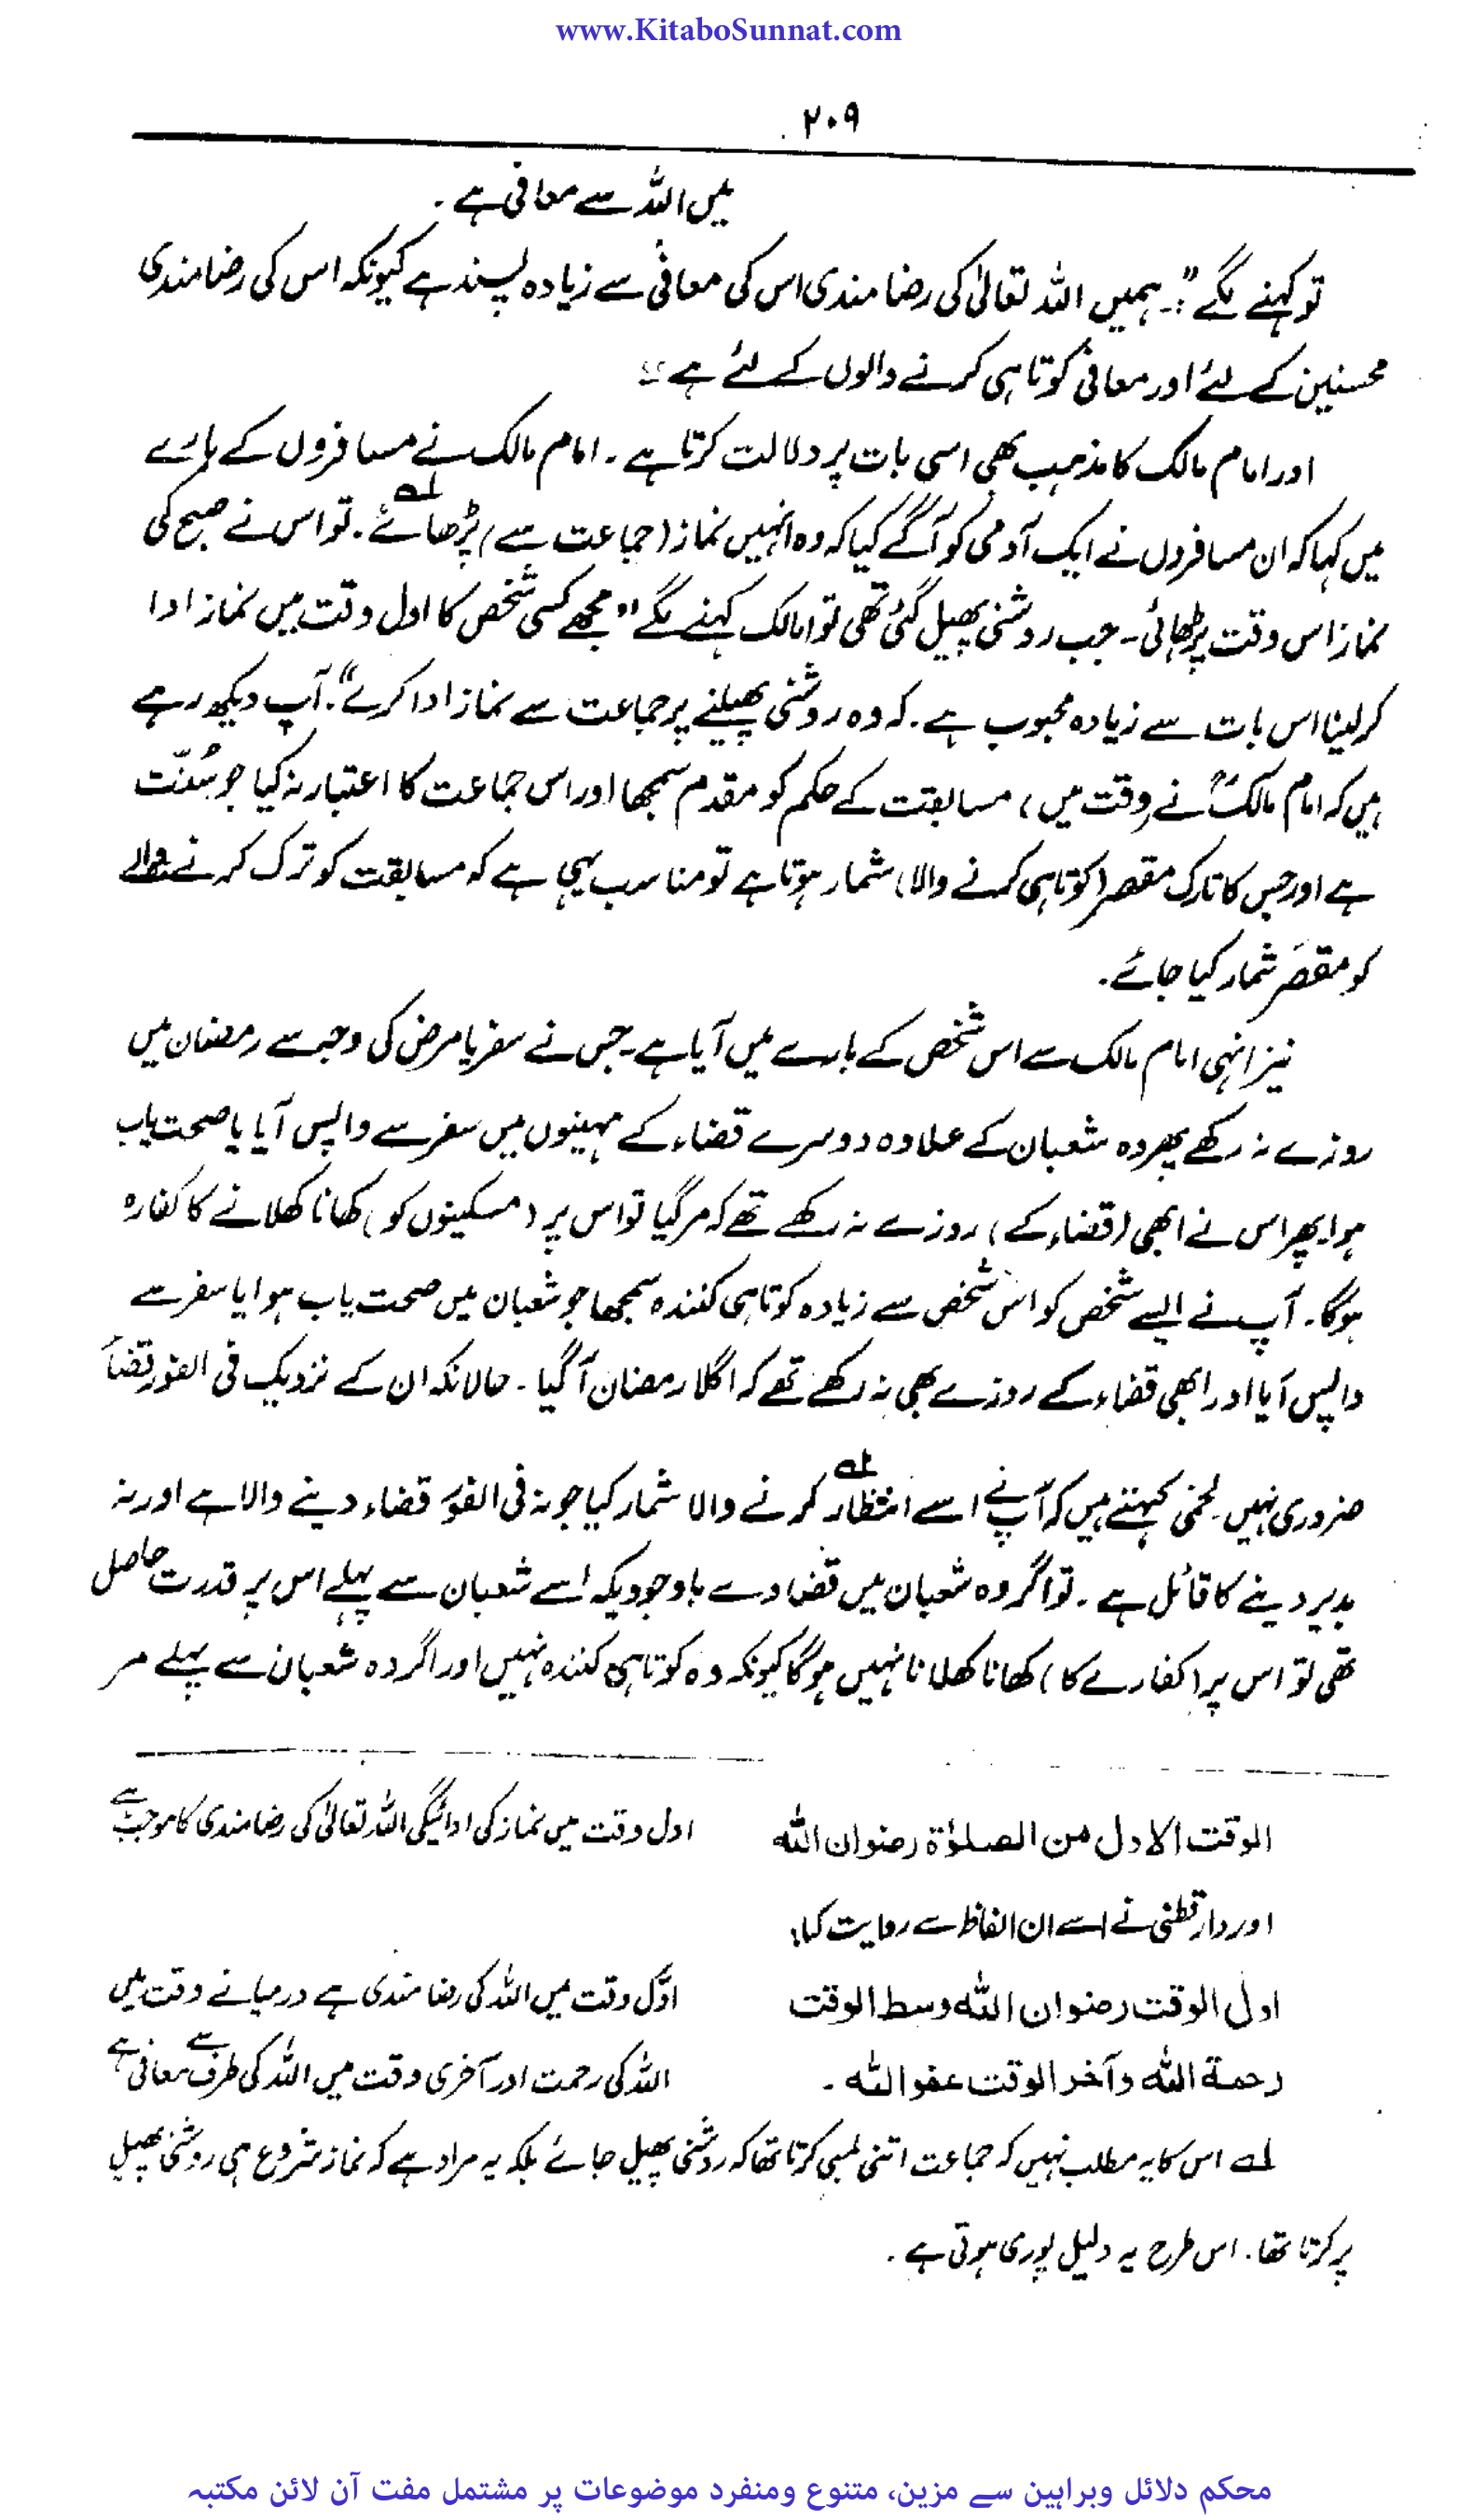 www.KitaboSunnat.com
۲۰۹
میں اللہ سے معافی ہے۔
تو کہنے لگے "۔ ہمیں اللہ تعالیٰ کی رضا مندی اس کی معافی سے زیادہ پسند ہے کیونکہ اس کی رضامندی
محسنین کے لئے اور معافی کوتاہی کرنے والوں کے لئے ہے"
اور امام مالک کا مذہب بھی اسی بات پر دلالت کرتا ہے۔ امام مالک نے مسافروں کے بارے
میں کہا کہ ان مسافروں نے ایک آدمی کو آگے کیا کہ وہ انہیں نماز (جماعت سے) پڑھائے لہ۔ تو اس نے صبح کی
نماز اس وقت پڑھائی۔ جب روشنی پھیل گئی تھی تو امالک کہنے لگے "مجھے کسی شخص کا اول وقت میں نماز ادا
کرلینا اس بات سے زیادہ محبوب ہے۔ کہ وہ روشنی پھیلنے پر جماعت سے نماز ادا کرے"۔ آپ دیکھ رہے
ہیں کہ امام مالکؒ نے (وقت میں) مسابقت کے حکم کو مقدم سمجھا اور اس جماعت کا اعتبار نہ کیا جو سُنّت
ہے اور جس کا تارک مقصر (کوتاہی کرنے والا) شمار ہوتا ہے تو مناسب یہی ہے کہ مسابقت کو ترک کرنے والے
کو مقصر شمار کیا جائے۔
نیز انہی امام مالک سے اس شخص کے بارے میں آیا ہے۔ جس نے سفر یا مرض کی وجہ سے رمضان میں
روزے نہ رکھے پھر وہ شعبان کے علاوہ دوسرے قضاء کے مہینوں میں سفر سے واپس آیا یا صحت یاب
ہوا۔ پھر اس نے ابھی (قضاء کے) روزے نہ رکھے تھے کہ مرگیا تو اس پر (مسکینوں کو) کھانا کھلانے کا کفارہ
ہوگا۔ آپ نے ایسے شخص کو اس شخص سے زیادہ کوتاہی کنندہ سمجھا جو شعبان میں صحت یاب ہوا یا سفر سے
واپس آیا اور ابھی قضاء کے روزے بھی نہ رکھے تھے کہ اگلا رمضان آگیا۔ حالانکہ ان کے نزدیک فی الفور قضاَ
ضروری نہیں۔ لخمی کہتے ہیں کہ آپ نے اسے انتظار لہ کرنے والا شمار کیا جو نہ فی الفور قضاء دینے والا ہے اور نہ
بدیر دینے کا قائل ہے۔ تو اگر وہ شعبان میں قضا دے باوجودیکہ اسے شعبان سے پہلے اس پر قدرت حاصل
تھی تو اس پر (کفارے کا) کھانا کھلانا نہیں ہوگا کیونکہ وہ کوتاہی کنندہ نہیں اور اگر وہ شعبان سے پہلے مر
الوقت الاول من الصلوٰة رضوان اللہ اول وقت میں نماز کی ادائیگی اللہ تعالیٰ کی رضامندی کا موجب ہے
اور دارقطنی نے اسے ان الفاظ سے روایت کیا:
اول الوقت رضوان اللہ وسط الوقت اوّل وقت میں اللہ کی رضا مندی ہے درمیانے وقت میں
رحمة اللہ وآخر الوقت عفو اللہ۔ اللہ کی رحمت اور آخری وقت میں اللہ کی طرف سے معافی ہے
لہ اس کا یہ مطلب نہیں کہ جماعت اتنی لمبی کرتا تھا کہ روشنی پھیل جائے بلکہ یہ مراد ہے کہ نماز شروع ہی روشنی پھیلنے
پر کرتا تھا۔ اس طرح یہ دلیل پوری ہوتی ہے۔
محکم دلائل وبراہین سے مزین، متنوع ومنفرد موضوعات پر مشتمل مفت آن لائن مکتبہ